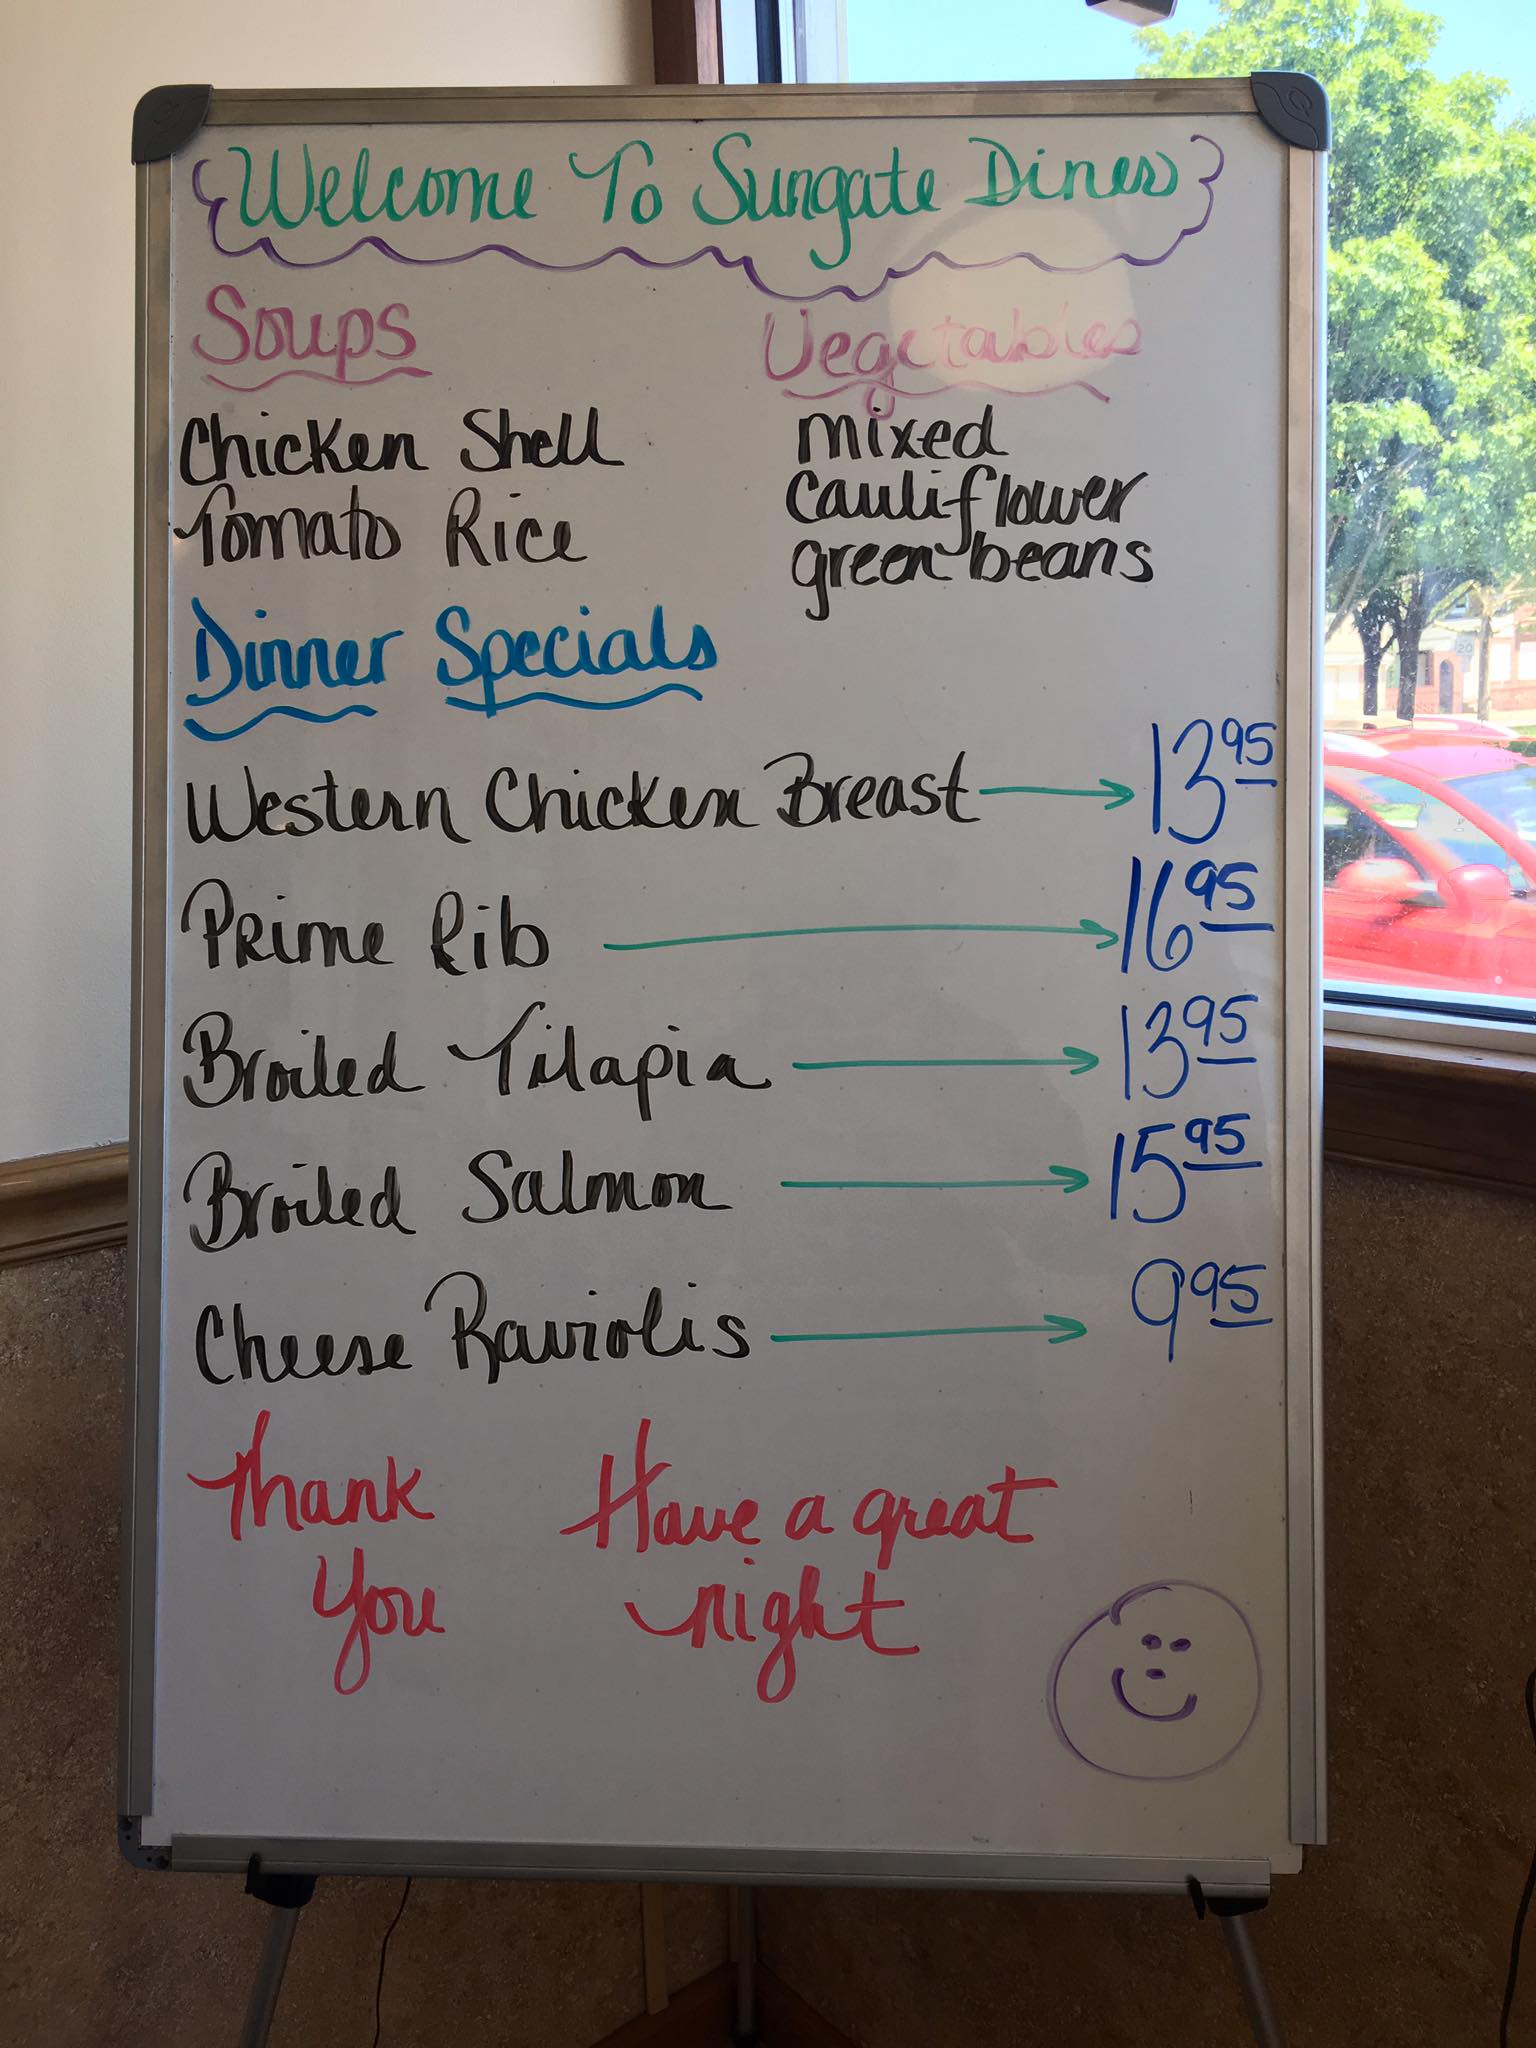 Welcome To Sungate Diner
Soups
Vegetables
Chicken Shell
Tomato Rice
mixed
cauliflower
green beans
Dinner Specials
Western Chicken Breast → 13 95
Prime Rib → 16 95
Broiled Tilapia → 13 95
Broiled Salmon → 15 95
Cheese Raviolis → 9 95
Thank
You
Have a great
night